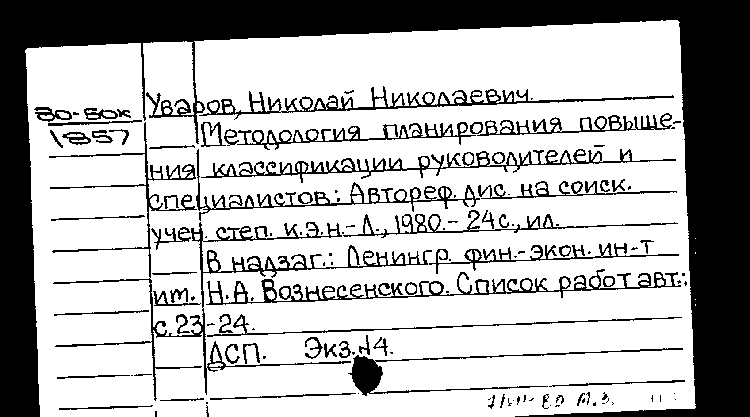 Уваров, Николай Николаевич.
80-60к
1857
Методология планирования повыше-
ния классификации руководителей и
специалистов: Автореф. дис. на соиск.
учен. степ. к.э.н.-Л., 1980.- 24с., ил.
В надзаг.: Ленингр. фин.-экон. ин-т
им. Н.А. Вознесенского. Список работ авт.:
с.23-24.
ДСП. Экз.№4.
80 М.З.